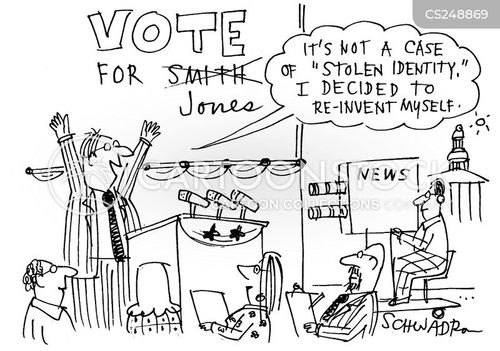 CS248869
VOTE
FOR SMITH
Jones
IT'S NOT A CASE
OF "STOLEN IDENTITY."
I DECIDED TO
RE-INVENT MYSELF.
NEWS
CARTOONSTOCK
CARTOON COLLECTIONS.COM
SCHWADRON